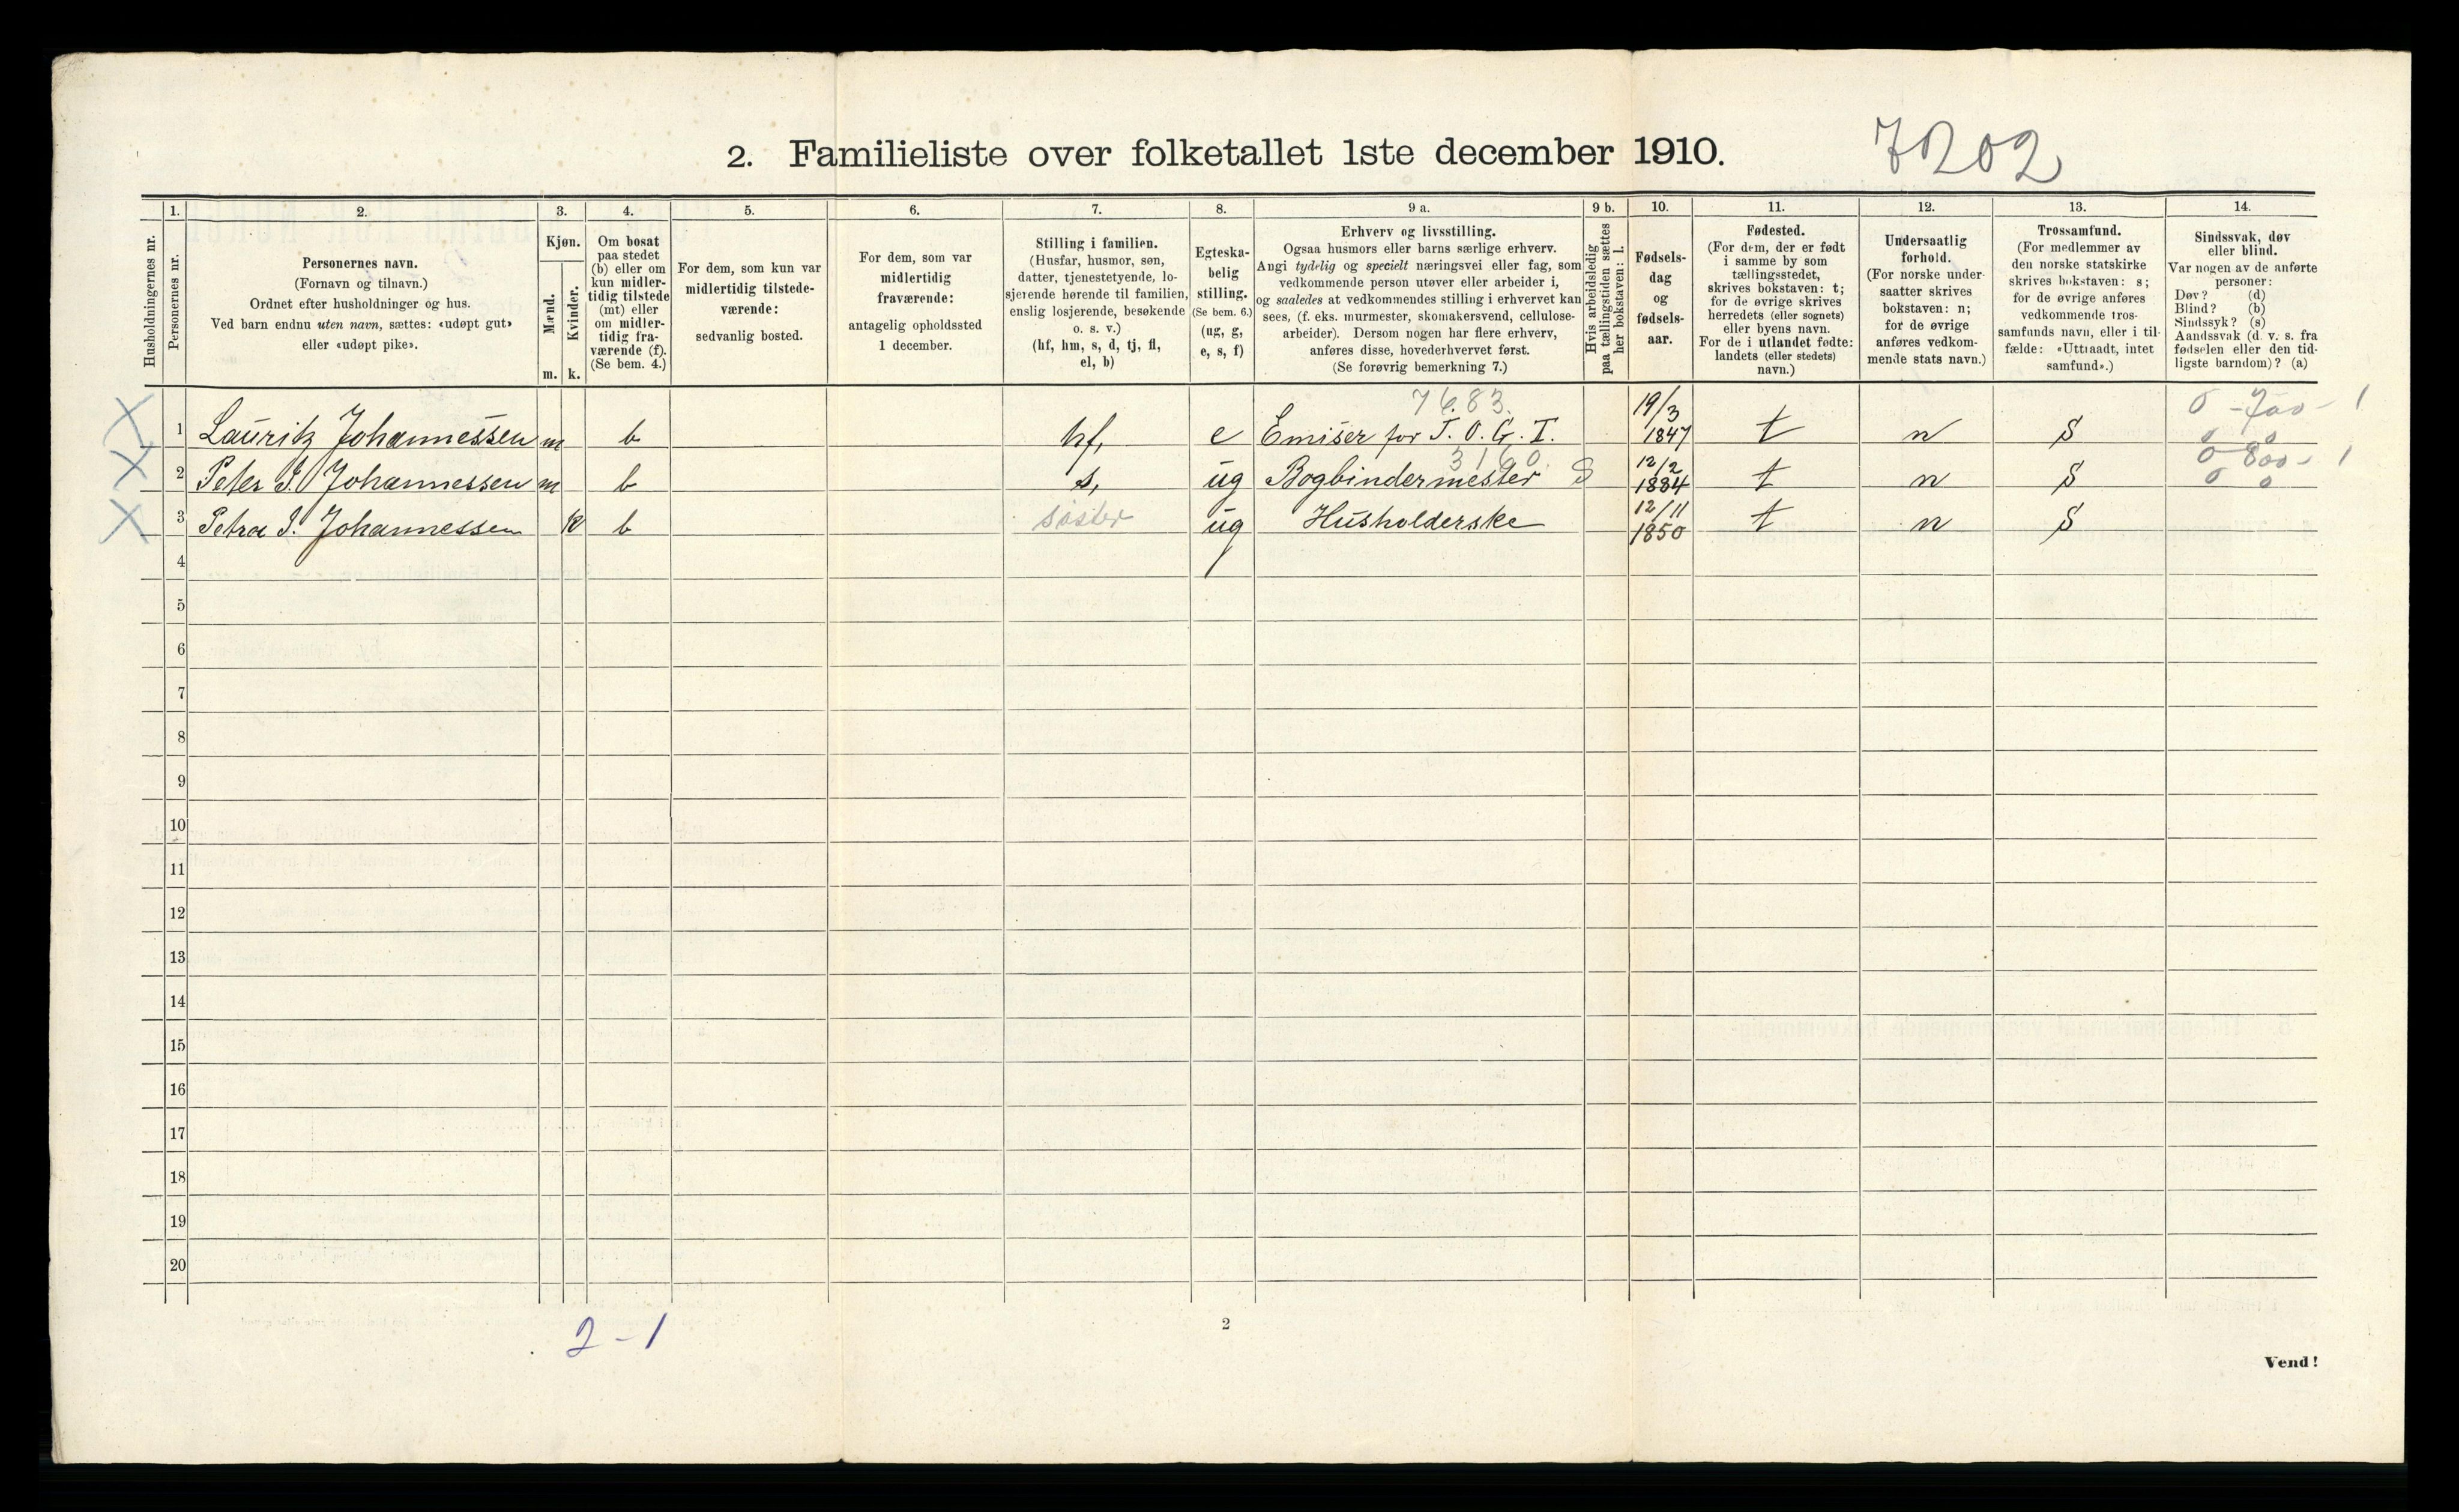 2. Familieliste over folketallet 1ste december 1910.
7202
1. 2. 3. 4. 5. 6. 7. 8. 9 a. 9 b. 10. 11. 12. 13. 14.
Husholdningernes nr.
Personernes nr.
Personernes navn.
(Fornavn og tilnavn.)
Ordnet efter husholdninger og hus.
Ved barn endnu uten navn, sættes: «udøpt gut»
eller «udøpt pike».
Kjøn.
Mænd.
Kvinder.
m. k.
Om bosat
paa stedet
(b) eller om
kun midler-
tidig tilstede
(mt) eller
om midler-
tidig fra-
værende (f).
(Se bem. 4.)
For dem, som kun var
midlertidig tilstede-
værende:
sedvanlig bosted.
For dem, som var
midlertidig
fraværende:
antagelig opholdssted
1 december.
Stilling i familien.
(Husfar, husmor, søn,
datter, tjenestetyende, lo-
sjerende hørende til familien,
enslig losjerende, besøkende
o. s. v.)
(hf, hm, s, d, tj, fl,
el, b)
Egteska-
belig
stilling.
(Se bem. 6.)
(ug, g,
e, s, f)
Erhverv og livsstilling.
Ogsaa husmors eller barns særlige erhverv.
Angi tydelig og specielt næringsvei eller fag, som
vedkommende person utøver eller arbeider i,
og saaledes at vedkommendes stilling i erhvervet kan
sees, (f. eks. murmester, skomakersvend, cellulose-
arbeider). Dersom nogen har flere erhverv,
anføres disse, hovederhvervet først.
(Se forøvrig bemerkning 7.)
Hvis arbeidsledig
paa tællingstiden sættes
her bokstaven: l.
Fødsels-
dag
og
fødsels-
aar.
Fødested.
(For dem, der er født
i samme by som
tællingsstedet,
skrives bokstaven: t;
for de øvrige skrives
herredets (eller sognets)
eller byens navn.
For de i utlandet fødte:
landets (eller stedets)
navn.)
Undersaatlig
forhold.
(For norske under-
saatter skrives
bokstaven: n;
for de øvrige
anføres vedkom-
mende stats navn.)
Trossamfund.
(For medlemmer av
den norske statskirke
skrives bokstaven: s;
for de øvrige anføres
vedkommende tros-
samfunds navn, eller i til-
fælde: «Uttraadt, intet
samfund».)
Sindssvak, døv
eller blind.
Var nogen av de anførte
personer:
Døv? (d)
Blind? (b)
Sindssyk? (s)
Aandssvak (d. v. s. fra
fødselen eller den tid-
ligste barndom)? (a)
7683 0 - 700 - 1
X 1 Lauritz Johannessen m b hf, e Emisær for I. O. G. T. 19/3 1847 t n S 0 0
3160 0 800 - 1
X 2 Peter I. Johannessen m b s, ug Bogbindermester S 12/2 1884 t n S 0 0
X 3 Petra I. Johannessen k b søster ug Husholderske 12/11 1850 t n S
4
5
6
7
8
9
10
11
12
13
14
15
16
17
18
19
20
2 - 1
2
Vend!